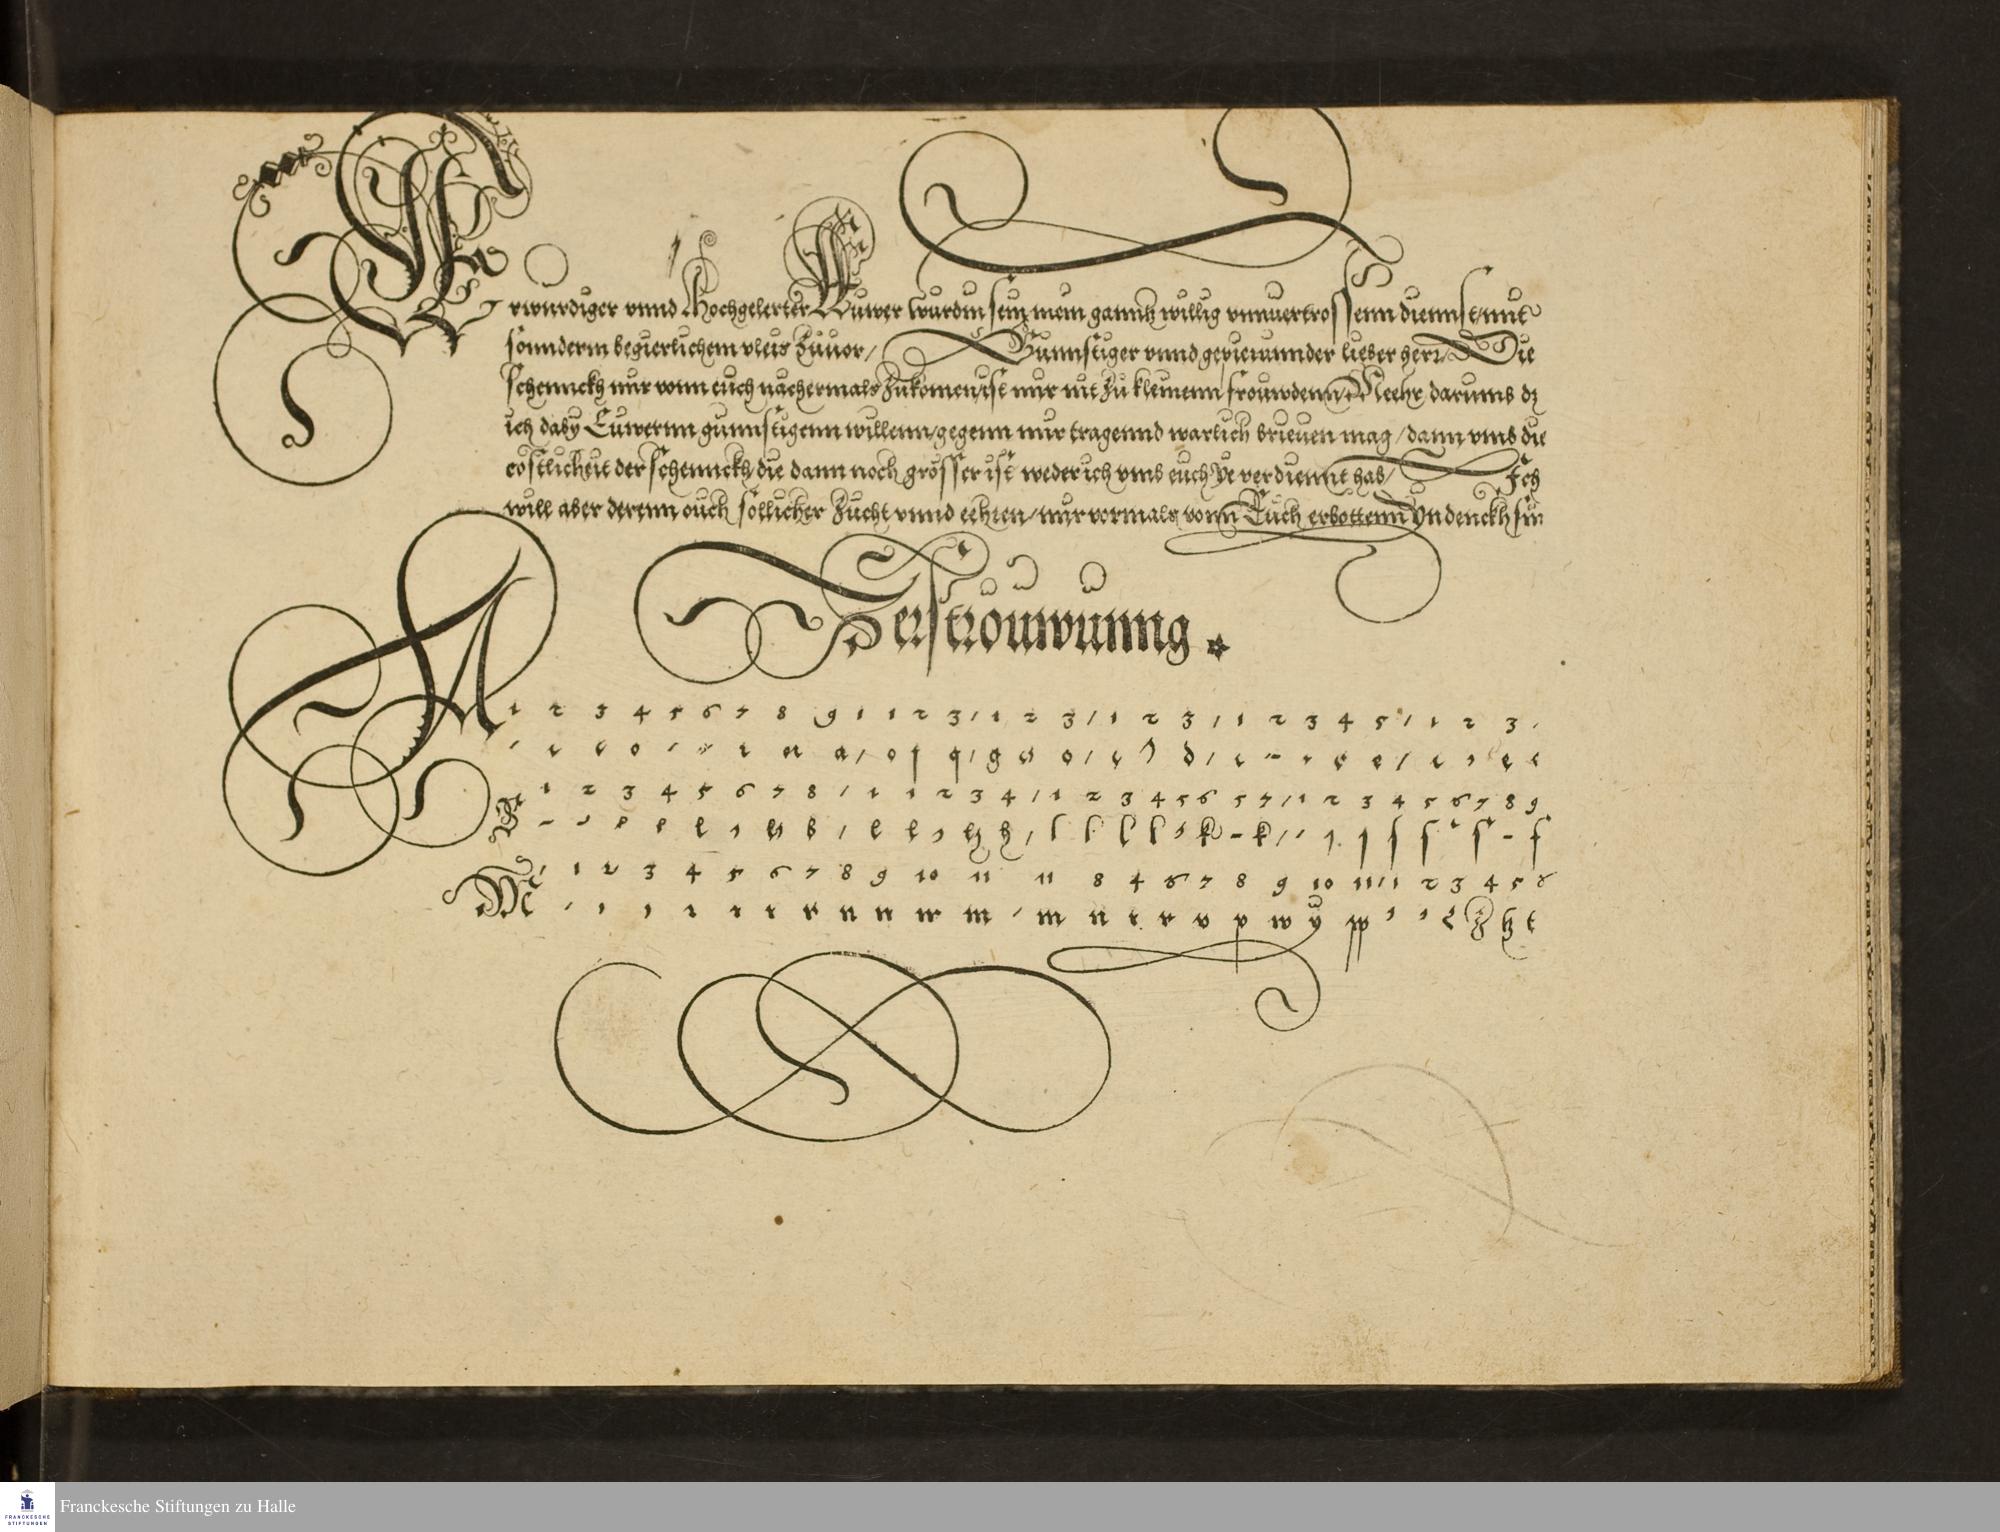 Erwurdiger vnnd Hochgelerter Euwer wurdin sein mein ganntz willig vnnuertrossenn diennst/mit
sonnderm begierlichem vleis Zuuor/ Gunnstiger vnnd gepietunnder lieber herr/ Die
schennckh mir vonn euch nachermals Zukomen/ist mir nit Zu kleinenn frouwdenn/Meehr darumb dz
ich daby Euwernn gunnstigenn willenn/gegenn mir tragennd warlich brieuen mag/dann vmb die
costlicheit der schennckh/die dann noch grösser ist weder ich vmb euch ye verdiennt hab/ Ich
will aber derenn ouch sollicher Zucht vnnd eehren/mir vormals vonn Euch erbottenn Yndenckh sin
Zerströuwunng
A 1 2 3 4 5 6 7 8 9 1 1 2 3 / 1 2 3 / 1 2 3 / 1 2 3 4 5 / 1 2 3 /
1 2 3 4 5 6 7 8 / 1 1 2 3 4 / 1 2 3 4 5 6 5 7 / 1 2 3 4 5 6 7 8 9
1 2 3 4 5 6 7 8 9 10 11 11 8 4 6 7 8 9 10 11 / 1 2 3 4 5 6
M
Franckesche Stiftungen zu Halle
FRANCKESCHE
STIFTUNGEN